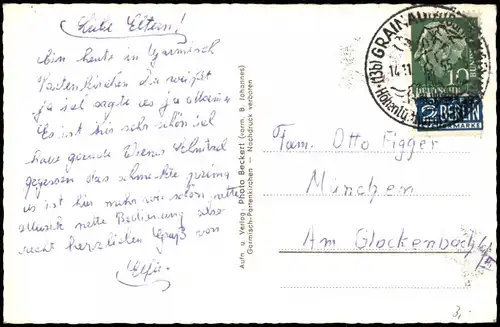 Liebe Eltern!
Bin heute in Garmisch
Partenkirchen Du weißt
ja viel sagte es ja
Es ist hier sehr schön
habe gerade Wiener Schnitzel
gegessen das schmeckte prima
es ist hier schön nette
Musik nette Bedienung also
recht herzlichen Gruß von
Elfie.
Aufn. u. Verlag: Photo Beckert (vorm. B. Johannes)
Garmisch-Partenkirchen Nachdruck verboten
(13b) GRAINAU
14.11
10
DEUTSCHE
BUNDESPOST
2 BERLIN
STEUERMARKE
Fam. Otto Figger
München
Am Glockenbach
3,-